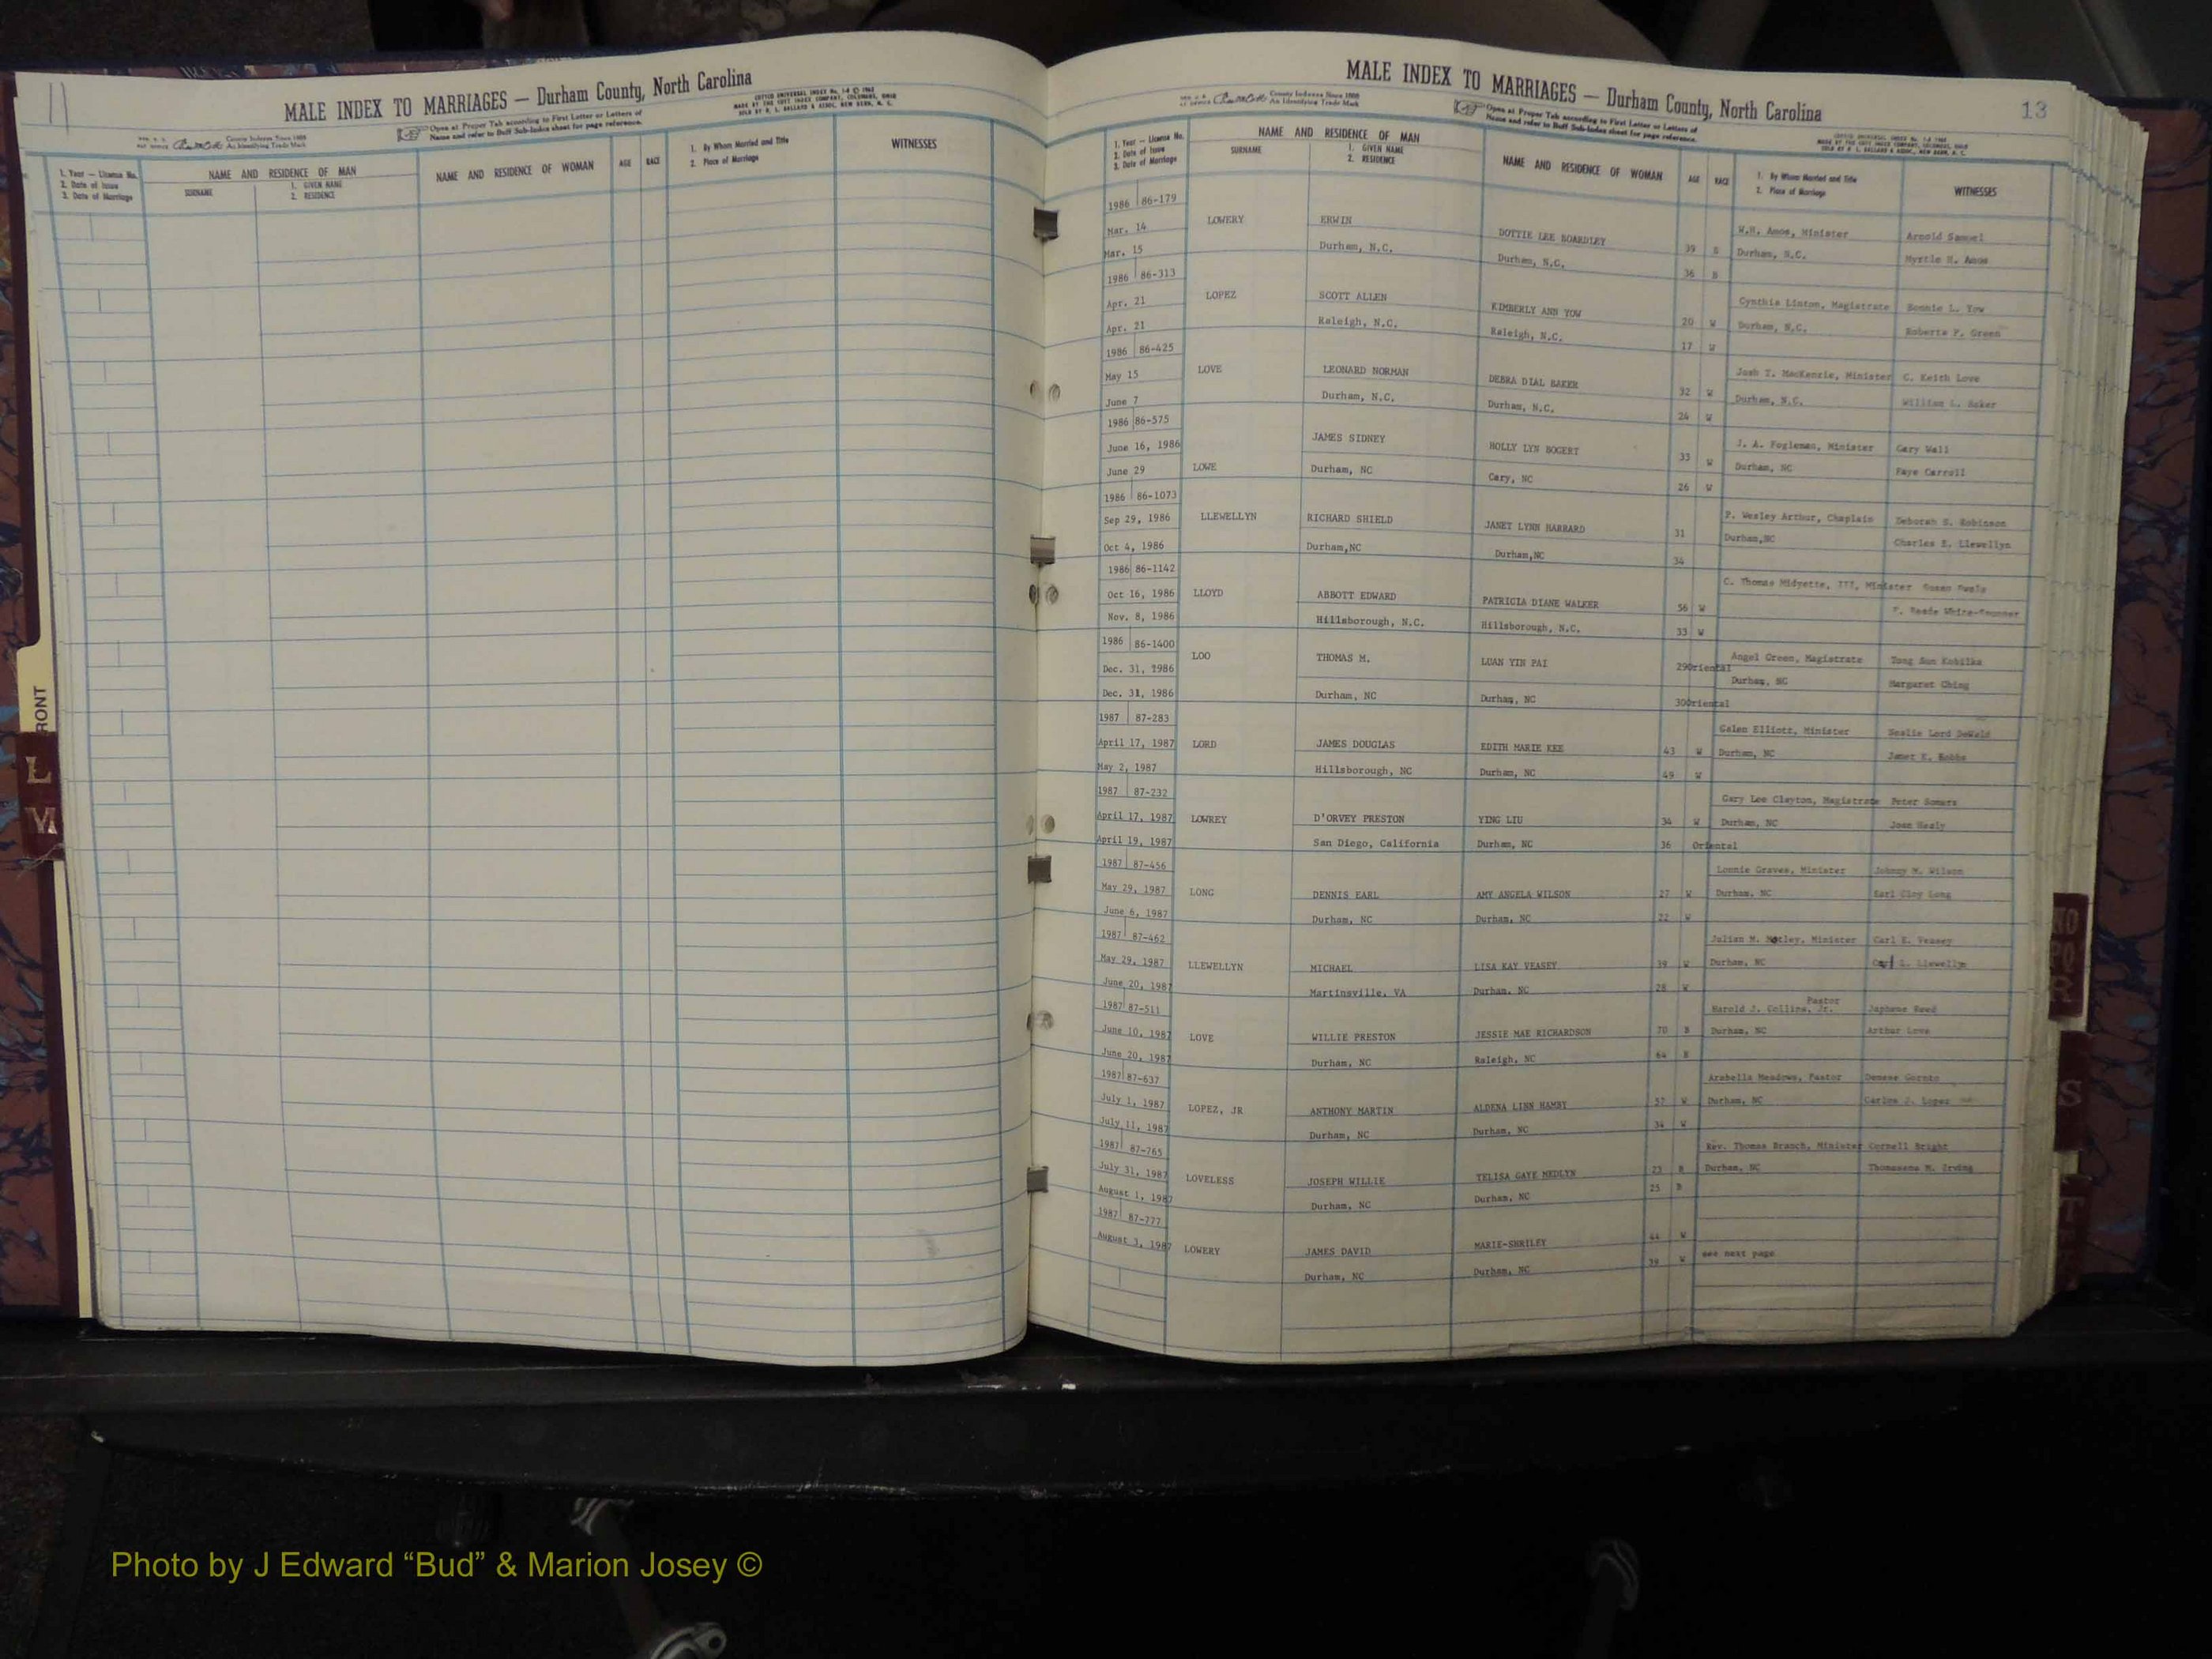 11
MALE INDEX TO MARRIAGES — Durham County, North Carolina
Open at Proper Tab according to First Letter or Letters of
Name and refer to Buff Sub-Index sheet for page reference.
County Indexes Since 1888
An Identifying Trade Mark
1. Year — License No.
2. Date of Issue
3. Date of Marriage
NAME AND RESIDENCE OF MAN
SURNAME
1. GIVEN NAME
2. RESIDENCE
NAME AND RESIDENCE OF WOMAN
AGE
RACE
1. By Whom Married and Title
2. Place of Marriage
WITNESSES
RONT
L
MALE INDEX TO MARRIAGES — Durham County, North Carolina
13
County Indexes Since 1888
An Identifying Trade Mark
Open at Proper Tab according to First Letter or Letters of
Name and refer to Buff Sub-Index sheet for page reference.
1. Year — License No.
2. Date of Issue
3. Date of Marriage
NAME AND RESIDENCE OF MAN
SURNAME
1. GIVEN NAME
2. RESIDENCE
NAME AND RESIDENCE OF WOMAN
AGE
RACE
1. By Whom Married and Title
2. Place of Marriage
WITNESSES
1986 86-179
Mar. 14 LOWERY ERWIN DOTTIE LEE BOARDLEY 39 B W.H. Amos, Minister Arnold Samuel
Mar. 15 Durham, N.C. Durham, N.C. 36 B Durham, N.C. Myrtle H. Amos
1986 86-313
Apr. 21 LOPEZ SCOTT ALLEN KIMBERLY ANN YOW 20 W Cynthia Linton, Magistrate Bonnie L. Yow
Apr. 21 Raleigh, N.C. Raleigh, N.C. 17 W Durham, N.C. Roberta P. Green
1986 86-425
May 15 LOVE LEONARD NORMAN DEBRA DIAL BAKER 32 W Josh T. MacKenzie, Minister C. Keith Love
June 7 Durham, N.C. Durham, N.C. 24 W Durham, N.C. William L. Baker
1986 86-575
June 16, 1986 JAMES SIDNEY HOLLY LYN BOGERT 33 W J. A. Fogleman, Minister Gary Wall
June 29 LOWE Durham, NC Cary, NC 26 W Durham, NC Faye Carroll
1986 86-1073
Sep 29, 1986 LLEWELLYN RICHARD SHIELD JANET LYNN HARRARD 31 P. Wesley Arthur, Chaplain Deborah S. Robinson
Oct 4, 1986 Durham,NC Durham,NC 34 Durham,NC Charles E. Llewellyn
1986 86-1142
Oct 16, 1986 LLOYD ABBOTT EDWARD PATRICIA DIANE WALKER 56 W C. Thomas Midyette, III, Minister Susan
Nov. 8, 1986 Hillsborough, N.C. Hillsborough, N.C. 33 W
1986 86-1400
Dec. 31, 1986 LOO THOMAS M. LUAN YIN PAI 29Oriental Angel Green, Magistrate Tong Sun Kobilka
Dec. 31, 1986 Durham, NC Durham, NC 30Oriental Durham, NC Margaret Ching
1987 87-283
April 17, 1987 LORD JAMES DOUGLAS EDITH MARIE KEE 43 W Galen Elliott, Minister Lord DeWald
May 2, 1987 Hillsborough, NC Durham, NC 49 W Durham, NC Janet K. Hobbs
1987 87-232
April 17, 1987 LOWREY D'ORVEY PRESTON YING LIU 34 W Gary Lee Clayton, Magistrate Peter Somers
April 19, 1987 San Diego, California Durham, NC 36 Oriental Durham, NC Joan Healy
1987 87-456
May 29, 1987 LONG DENNIS EARL AMY ANGELA WILSON 27 W Lonnie Graves, Minister Johnny M. Wilson
June 6, 1987 Durham, NC Durham, NC 22 W Durham, NC Earl Cloy Long
1987 87-462
May 29, 1987 LLEWELLYN MICHAEL LISA KAY VEASEY 39 W Julian M. Motley, Minister Carl E. Veasey
June 20, 1987 Martinsville, VA Durham, NC 28 W Durham, NC L. Llewellyn
1987 87-511
June 10, 1987 LOVE WILLIE PRESTON JESSIE MAE RICHARDSON 70 B Harold J. Collins, Jr. Pastor Reed
June 20, 1987 Durham, NC Raleigh, NC 64 B Durham, NC Arthur Love
1987 87-637
July 1, 1987 LOPEZ, JR ANTHONY MARTIN ALDENA LINN HAMBY 57 W Arabella Meadows, Pastor Denese
July 11, 1987 Durham, NC Durham, NC 34 W Durham, NC Carlos J. Lopez
1987 87-765
July 31, 1987 LOVELESS JOSEPH WILLIE TELISA GAYE MEDLYN 23 B Rev. Thomas Branch, Minister Cornell Bright
August 1, 1987 Durham, NC Durham, NC 25 B Durham, NC Thomasene M. Irving
1987 87-777
August 3, 1987 LOWERY JAMES DAVID MARIE-SHRILEY 44 W see next page
Durham, NC Durham, NC 39 W
S
T
Photo by J Edward “Bud” & Marion Josey ©